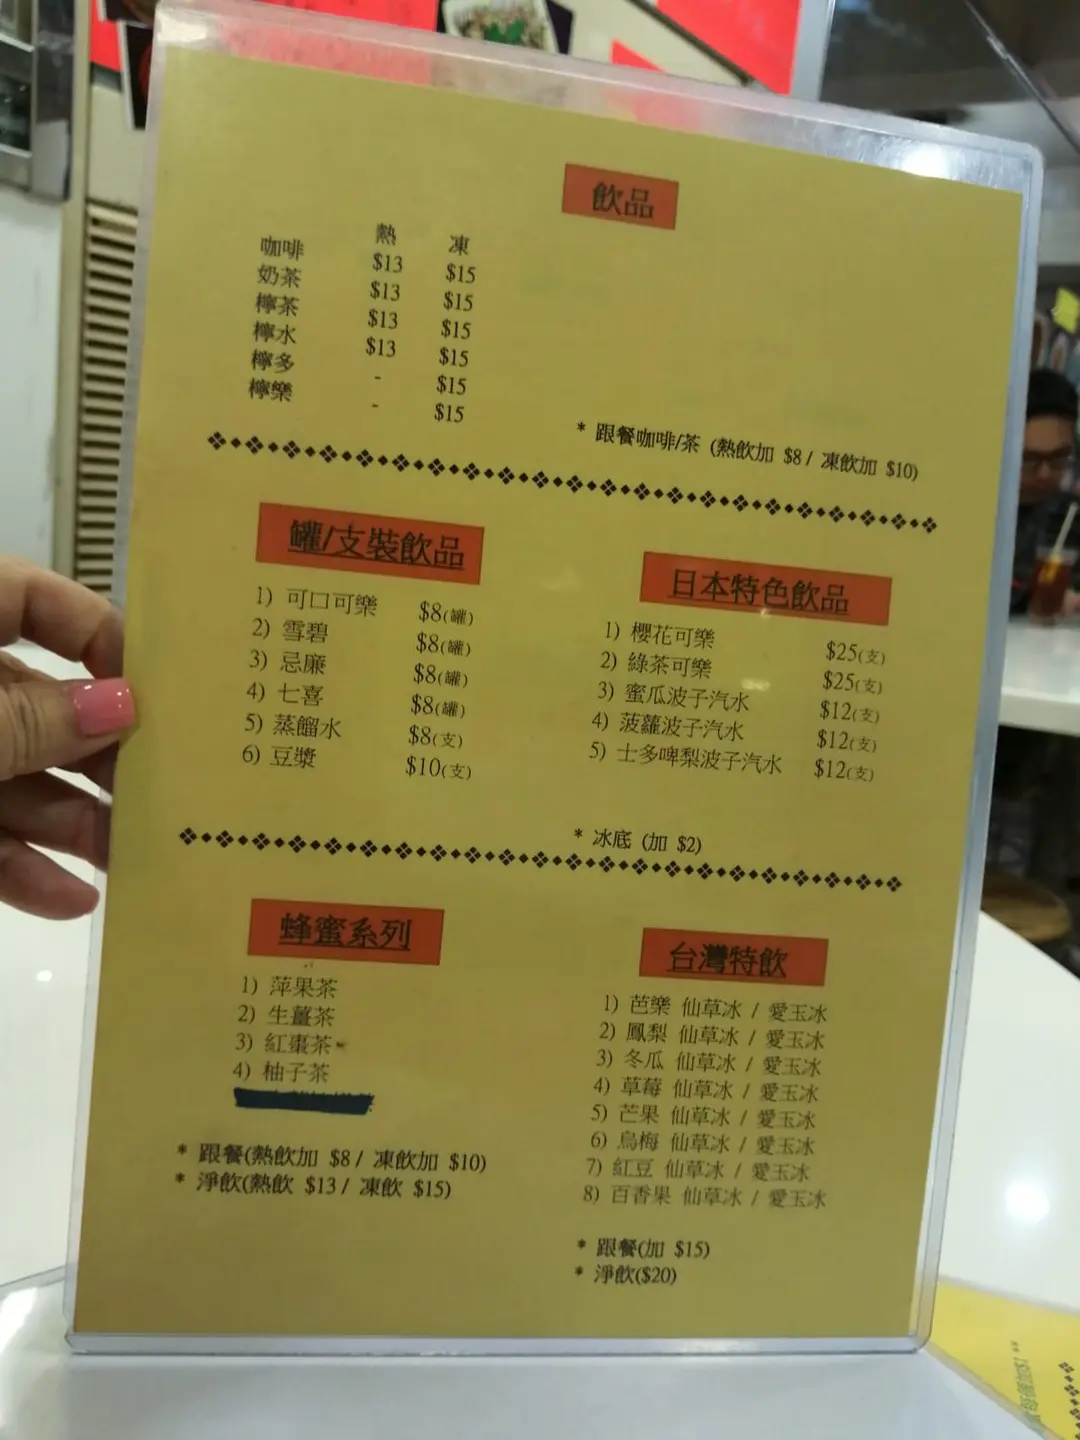 飲品
熱 凍
咖啡 $13 $15
奶茶 $13 $15
檸茶 $13 $15
檸水 $13 $15
檸多 - $15
檸樂 - $15
* 跟餐咖啡/茶 (熱飲加 $8 / 凍飲加 $10)
罐/支裝飲品
1) 可口可樂 $8(罐)
2) 雪碧 $8(罐)
3) 忌廉 $8(罐)
4) 七喜 $8(罐)
5) 蒸餾水 $8(支)
6) 豆漿 $10(支)
日本特色飲品
1) 櫻花可樂 $25(支)
2) 綠茶可樂 $25(支)
3) 蜜瓜波子汽水 $12(支)
4) 菠蘿波子汽水 $12(支)
5) 士多啤梨波子汽水 $12(支)
* 冰底 (加 $2)
蜂蜜系列
1) 萍果茶
2) 生薑茶
3) 紅棗茶
4) 柚子茶
* 跟餐(熱飲加 $8 / 凍飲加 $10)
* 淨飲(熱飲 $13 / 凍飲 $15)
台灣特飲
1) 芭樂 仙草冰 / 愛玉冰
2) 鳳梨 仙草冰 / 愛玉冰
3) 冬瓜 仙草冰 / 愛玉冰
4) 草莓 仙草冰 / 愛玉冰
5) 芒果 仙草冰 / 愛玉冰
6) 烏梅 仙草冰 / 愛玉冰
7) 紅豆 仙草冰 / 愛玉冰
8) 百香果 仙草冰 / 愛玉冰
* 跟餐(加 $15)
* 淨飲($20)